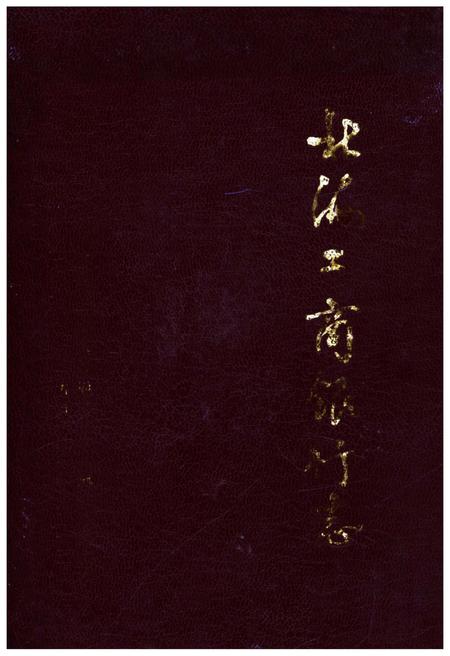 北海工商银行志